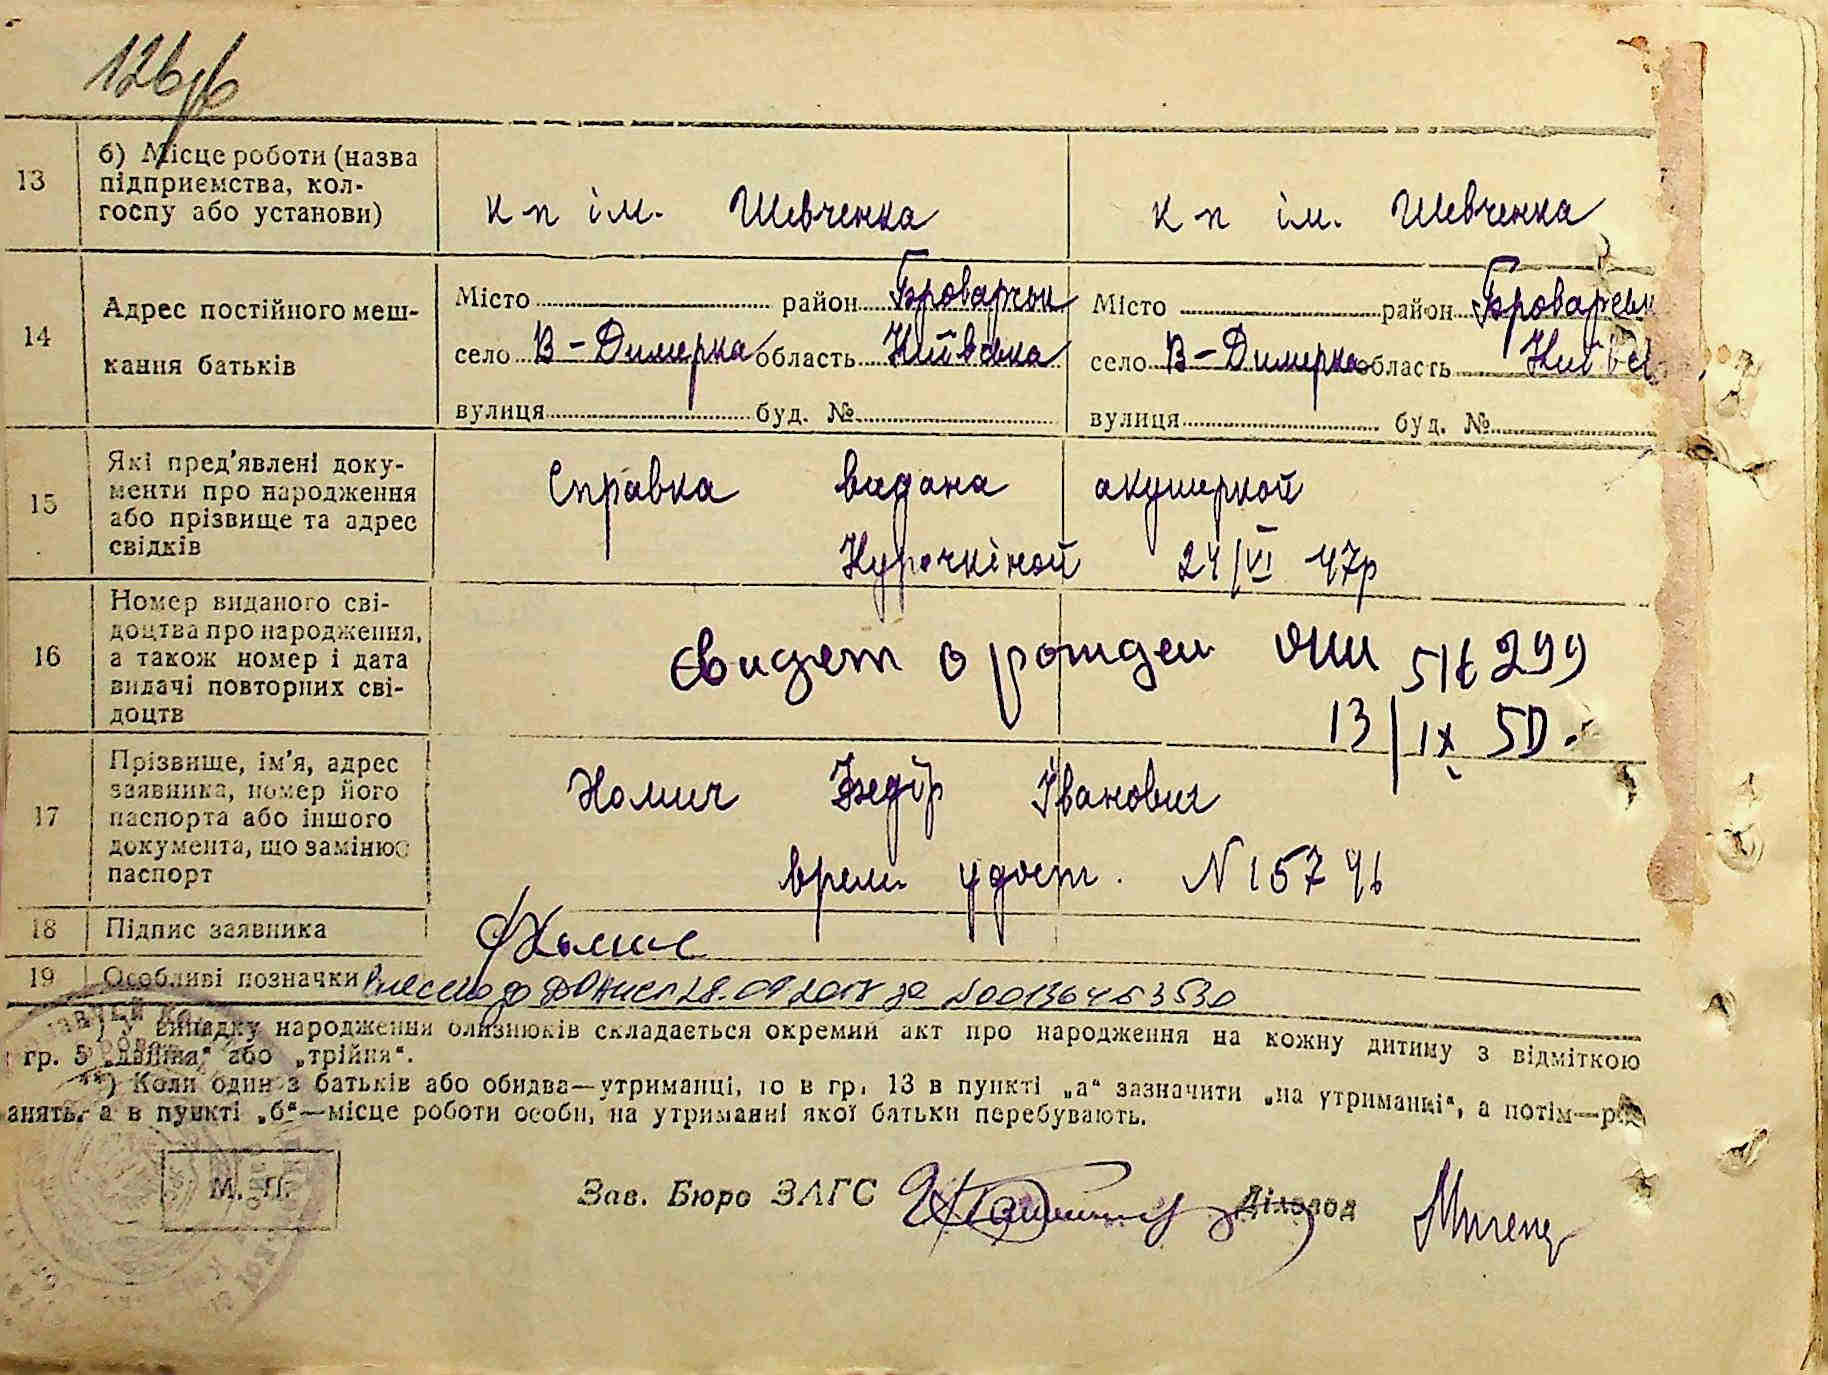 126
13
б) Місце роботи (назва
підприємства, кол-
госпу або установи)
к п ім. Шевченка
к п ім. Шевченка
14
Адрес постійного меш-
кання батьків
Місто район Броварськ
село В-Димерка область Київська
вулиця буд. №
Місто район Броварськ
село В-Димерка область Київсь
вулиця буд. №
15
Які пред'явлені доку-
менти про народження
або прізвище та адрес
свідків
Справка видана акушеркой
Курочкіной 24/VI 47р
16
Номер виданого сві-
доцтва про народження,
а також номер і дата
видачі повторних сві-
доцтв
Свидет о рожден 299
13/IX 50.
17
Прізвище, ім'я, адрес
заявника, номер його
паспорта або іншого
документа, що замінює
паспорт
Хомич Федір Іванович
врем. удост. N 15746
18
Підпис заявника
19
Особливі позначки Внесено до 28.09.2017 за N00136463530
*) У випадку народження близнюків складається окремий акт про народження на кожну дитину з відміткою
гр. 5 „двійня“ або „трійня“.
**) Коли один з батьків або обидва—утриманці, то в гр. 13 в пункті „а“ зазначити „на утриманні“, а потім—р
анять, а в пункті „б“—місце роботи особи, на утриманні якої батьки перебувають.
М. П.
Зав. Бюро ЗАГС
Діловод